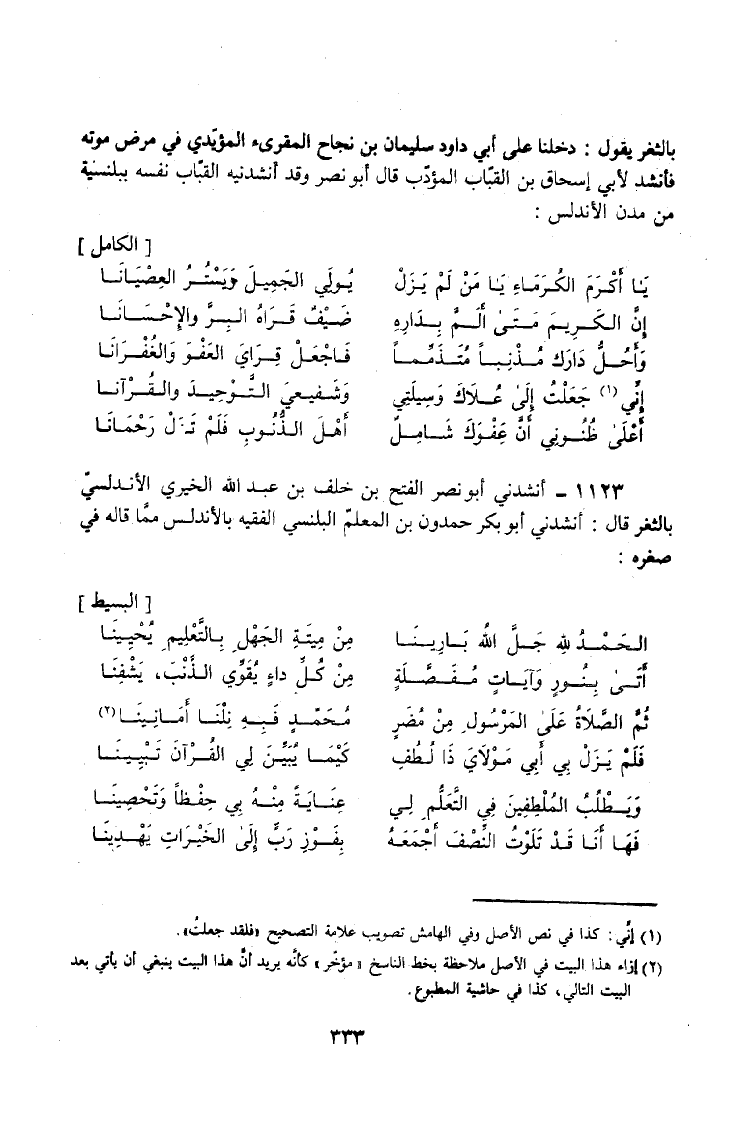 بالثغر يقول : دخلنا على أبي داود سليمان بن نجاح المقرىء المؤيّدي في مرض موته
فأنشد لأبي إسحاق بن القبّاب المؤدّب قال أبو نصر وقد أنشدنيه القبّاب نفسه ببلنسية
من مدن الأندلس :
[ الكامل ]
يَا أَكْرَمَ الكُرَمَاءِ يَا مَنْ لَمْ يَزَلْ يُولِي الجَمِيلَ وَيَسْتُرُ العِصْيَانَا
إِنَّ الكَرِيمَ مَتَىٰ أَلَمَّ بِدَارِهِ ضَيْفٌ قَرَاهُ البِرَّ والإِحْسَانَا
وَأَحُلُّ دَارَكَ مُذْنِباً مُتَذَمِّماً فَاجْعَلْ قِرَايَ العَفْوَ وَالغُفْرَانَا
إِنِّي (١) جَعَلْتُ إِلَىٰ عُلاَكَ وَسِيلَتِي وَشَفِيعَيَ التَّوْحِيدَ والقُرْآنَا
أَعْلَىٰ ظُنُونِي أَنَّ عَفْوَكَ شَامِلٌ أَهْلَ الذُّنُوبِ فَلَمْ تَزَلْ رَحْمَانَا
١١٢٣ - أنشدني أبو نصر الفتح بن خلف بن عبد الله الخيري الأندلسيّ
بالثغر قال : أنشدني أبو بكر حمدون بن المعلّم البلنسي الفقيه بالأندلس ممَّا قاله في
صغره :
[ البسيط ]
الحَمْدُ للهِ جَلَّ اللهُ بَارِينَا مِنْ مِيتَةِ الجَهْلِ بِالتَّعْلِيمِ يُحْيِينَا
أَتَىٰ بِنُورٍ وَآيَاتٍ مُفَصَّلَةٍ مِنْ كُلِّ داءٍ يُقَوِّي الذَّنْبَ، يَشْفِنَا
ثُمَّ الصَّلاَةُ عَلَىٰ المَرْسُولِ مِنْ مُضَرٍ مُحَمَّدٍ فَبِهِ نِلْنَا أَمَانِينَا (٢)
فَلَمْ يَزَلْ بِي أَبِي مَوْلاَيَ ذَا لُطُفٍ كَيْمَا يُبَيِّنَ لِي القُرْآنَ تَبْيِينَا
وَيَطْلُبُ المُلْطِفِينَ فِي التَّعَلُّمِ لِي عِنَايَةً مِنْهُ بِي حِفْظاً وَتَحْصِينَا
فَهَا أَنَا قَدْ تَلَوْتُ النِّصْفَ أَجْمَعَهُ بِفَوْزِ رَبٍّ إِلَىٰ الخَيْرَاتِ يَهْدِينَا
(١) إِنِّي : كذا في نص الأصل وفي الهامش تصويب علامة التصحيح «فلقد جعلتُ».
(٢) إزاء هذا البيت في الأصل ملاحظة بخط الناسخ «مؤخّر» كأنَّه يريد أنَّ هذا البيت ينبغي أن يأتي بعد
البيت التالي، كذا في حاشية المطبوع.
٣٣٣